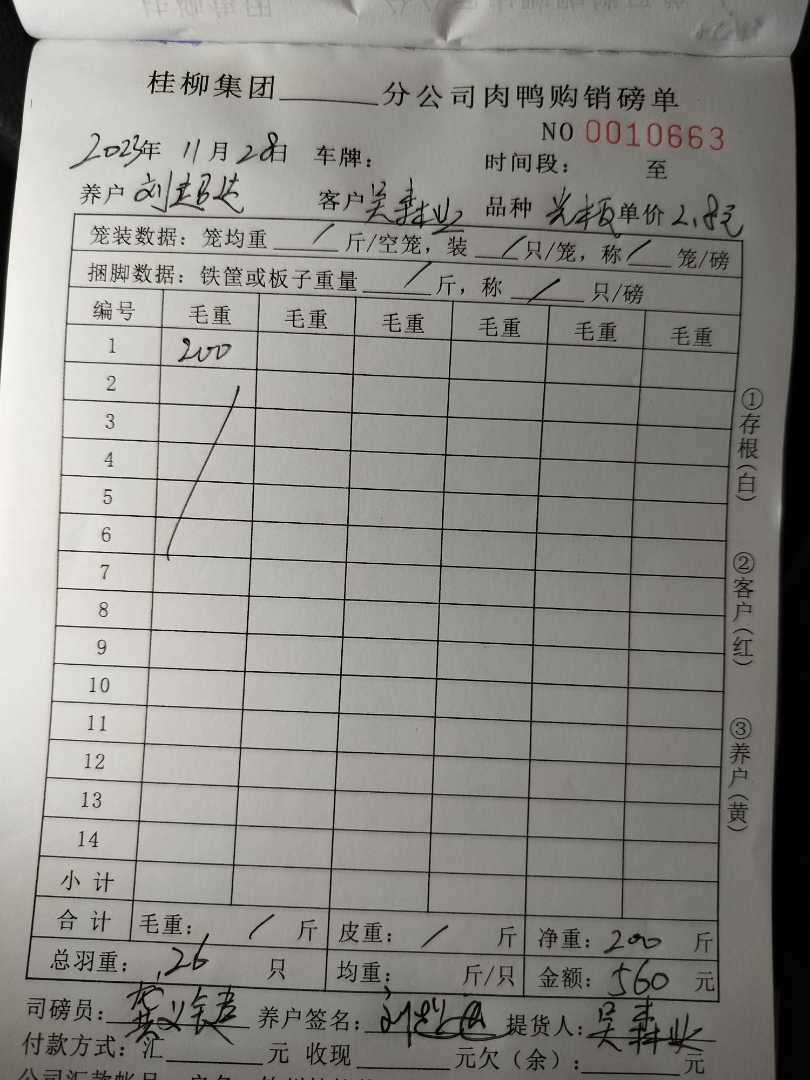 桂柳集团______分公司肉鸭购销磅单
NO 0010663
2023年 11月 28日 车牌： 时间段： 至
养户 刘 客户 吴森业 品种 光板 单价 2.8元
笼装数据：笼均重 / 斤/空笼，装 / 只/笼，称 / 笼/磅
捆脚数据：铁筐或板子重量 / 斤，称 / 只/磅
编号 毛重 毛重 毛重 毛重 毛重 毛重
1 200
2
3
4
5
6
7
8
9
10
11
12
13
14
小计
合计 毛重： / 斤 皮重： / 斤 净重：200 斤
总羽重：26 只 均重： 斤/只 金额：560 元
司磅员： 养户签名：刘 提货人：吴森业
付款方式：汇______元 收现______元欠（余）：______元
①存根（白）
②客户（红）
③养户（黄）